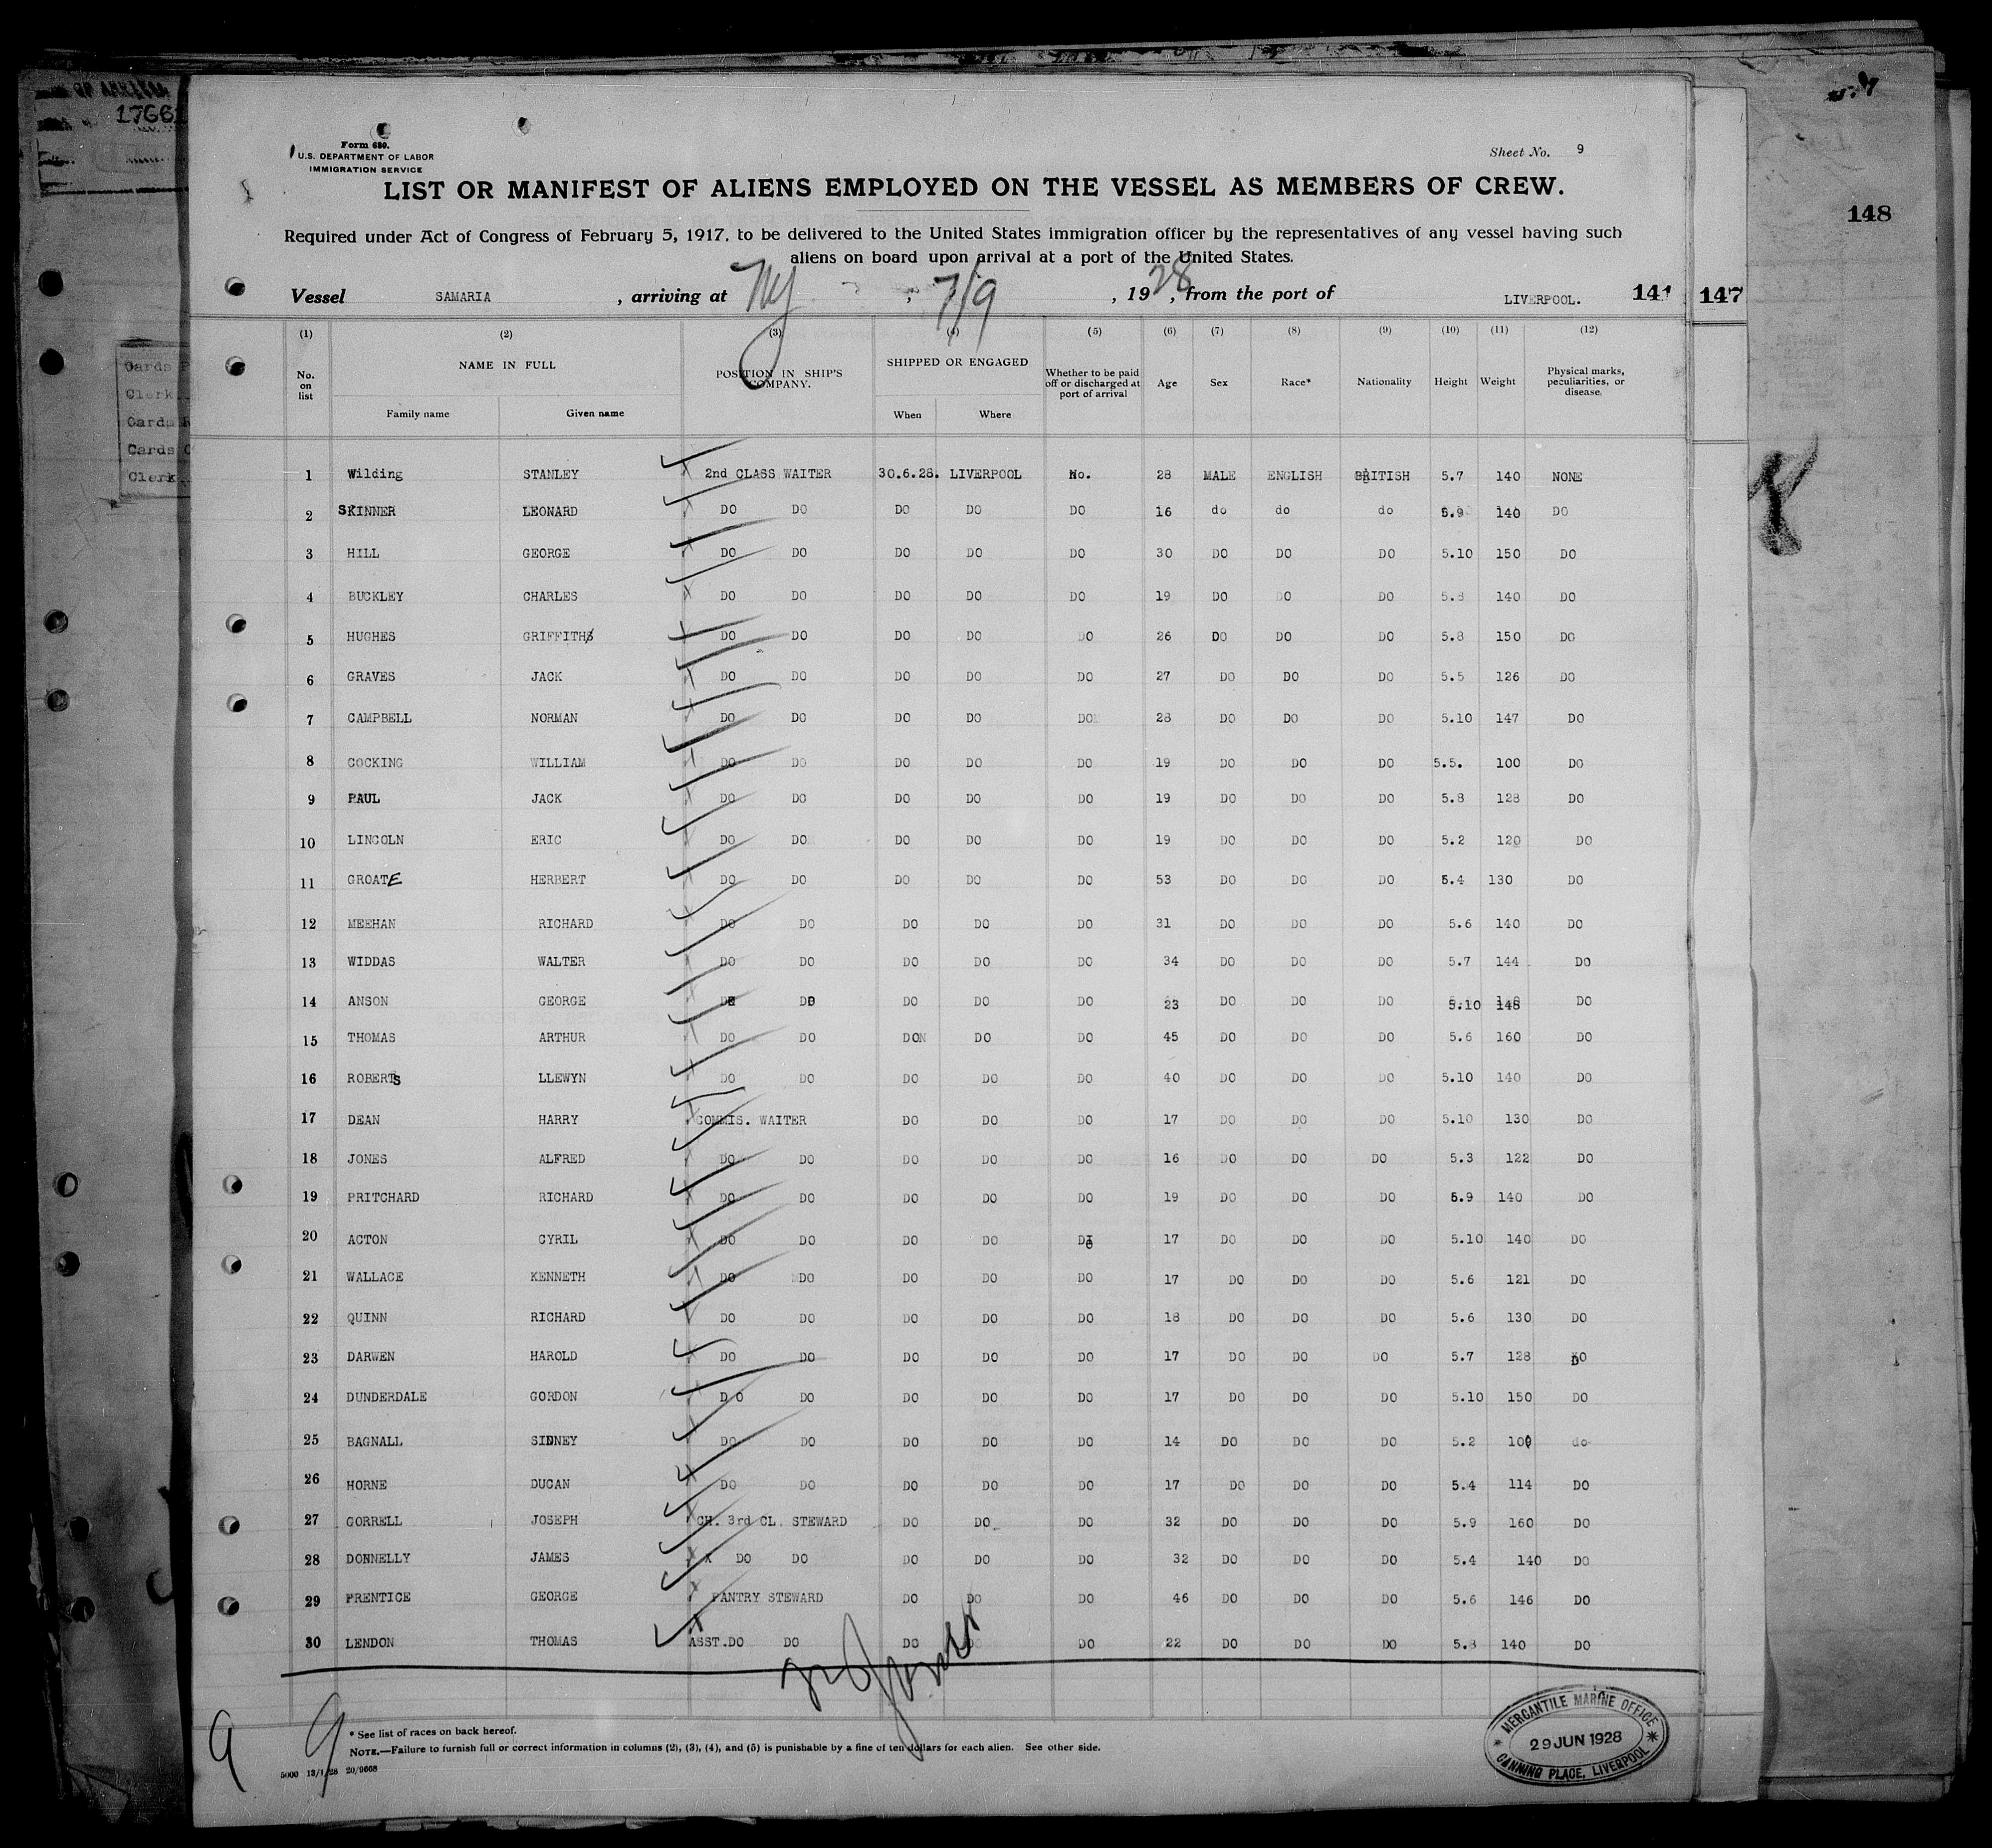 OF AMERICA
1766
Form 680.
U.S. DEPARTMENT OF LABOR
IMMIGRATION SERVICE
Sheet No. 9
LIST OR MANIFEST OF ALIENS EMPLOYED ON THE VESSEL AS MEMBERS OF CREW.
148
Required under Act of Congress of February 5, 1917, to be delivered to the United States immigration officer by the representatives of any vessel having such
aliens on board upon arrival at a port of the United States.
Vessel SAMARIA , arriving at NY , 7/9 , 1928, from the port of LIVERPOOL. 147
(1) (2) (3) (4) (5) (6) (7) (8) (9) (10) (11) (12)
No. on list NAME IN FULL POSITION IN SHIP'S COMPANY. SHIPPED OR ENGAGED Whether to be paid off or discharged at port of arrival Age Sex Race* Nationality Height Weight Physical marks, peculiarities, or disease.
Family name Given name When Where
Cards
Clerk
Cards
Cards
Clerk
1 Wilding STANLEY 2nd CLASS WAITER 30.6.28. LIVERPOOL No. 28 MALE ENGLISH BRITISH 5.7 140 NONE
2 SKINNER LEONARD DO DO DO DO DO 16 do do do 5.9 140 DO
3 HILL GEORGE DO DO DO DO DO 30 DO DO DO 5.10 150 DO
4 BUCKLEY CHARLES DO DO DO DO DO 19 DO DO DO 5.8 140 DO
5 HUGHES GRIFFITH DO DO DO DO DO 26 DO DO DO 5.8 150 DO
6 GRAVES JACK DO DO DO DO DO 27 DO DO DO 5.5 126 DO
7 CAMPBELL NORMAN DO DO DO DO DO 28 DO DO DO 5.10 147 DO
8 COCKING WILLIAM DO DO DO DO DO 19 DO DO DO 5.5. 100 DO
9 PAUL JACK DO DO DO DO DO 19 DO DO DO 5.8 128 DO
10 LINCOLN ERIC DO DO DO DO DO 19 DO DO DO 5.2 120 DO
11 GROATE HERBERT DO DO DO DO DO 53 DO DO DO 5.4 130 DO
12 MEEHAN RICHARD DO DO DO DO DO 31 DO DO DO 5.6 140 DO
13 WIDDAS WALTER DO DO DO DO DO 34 DO DO DO 5.7 144 DO
14 ANSON GEORGE DO DO DO DO DO 23 DO DO DO 5.10 148 DO
15 THOMAS ARTHUR DO DO DON DO DO 45 DO DO DO 5.6 160 DO
16 ROBERTS LLEWYN DO DO DO DO DO 40 DO DO DO 5.10 140 DO
17 DEAN HARRY COMMIS. WAITER DO DO DO 17 DO DO DO 5.10 130 DO
18 JONES ALFRED DO DO DO DO DO 16 DO DO DO 5.3 122 DO
19 PRITCHARD RICHARD DO DO DO DO DO 19 DO DO DO 5.9 140 DO
20 ACTON CYRIL DO DO DO DO DO 17 DO DO DO 5.10 140 DO
21 WALLACE KENNETH DO DO DO DO DO 17 DO DO DO 5.6 121 DO
22 QUINN RICHARD DO DO DO DO DO 18 DO DO DO 5.6 130 DO
23 DARWEN HAROLD DO DO DO DO DO 17 DO DO DO 5.7 128 DO
24 DUNDERDALE GORDON D O DO DO DO DO 17 DO DO DO 5.10 150 DO
25 BAGNALL SIDNEY DO DO DO DO DO 14 DO DO DO 5.2 100 do
26 HORNE DUCAN DO DO DO DO DO 17 DO DO DO 5.4 114 DO
27 GORRELL JOSEPH CH. 3rd CL. STEWARD DO DO DO 32 DO DO DO 5.9 160 DO
28 DONNELLY JAMES X DO DO DO DO DO 32 DO DO DO 5.4 140 DO
29 PRENTICE GEORGE PANTRY STEWARD DO DO DO 46 DO DO DO 5.6 146 DO
30 LENDON THOMAS ASST.DO DO DO DO DO 22 DO DO DO 5.8 140 DO
9 9
* See list of races on back hereof.
NOTE.—Failure to furnish full or correct information in columns (2), (3), (4), and (5) is punishable by a fine of ten dollars for each alien. See other side.
5000 13/1/28 20/9668
MERCANTILE MARINE OFFICE
29 JUN 1928
CANNING PLACE, LIVERPOOL